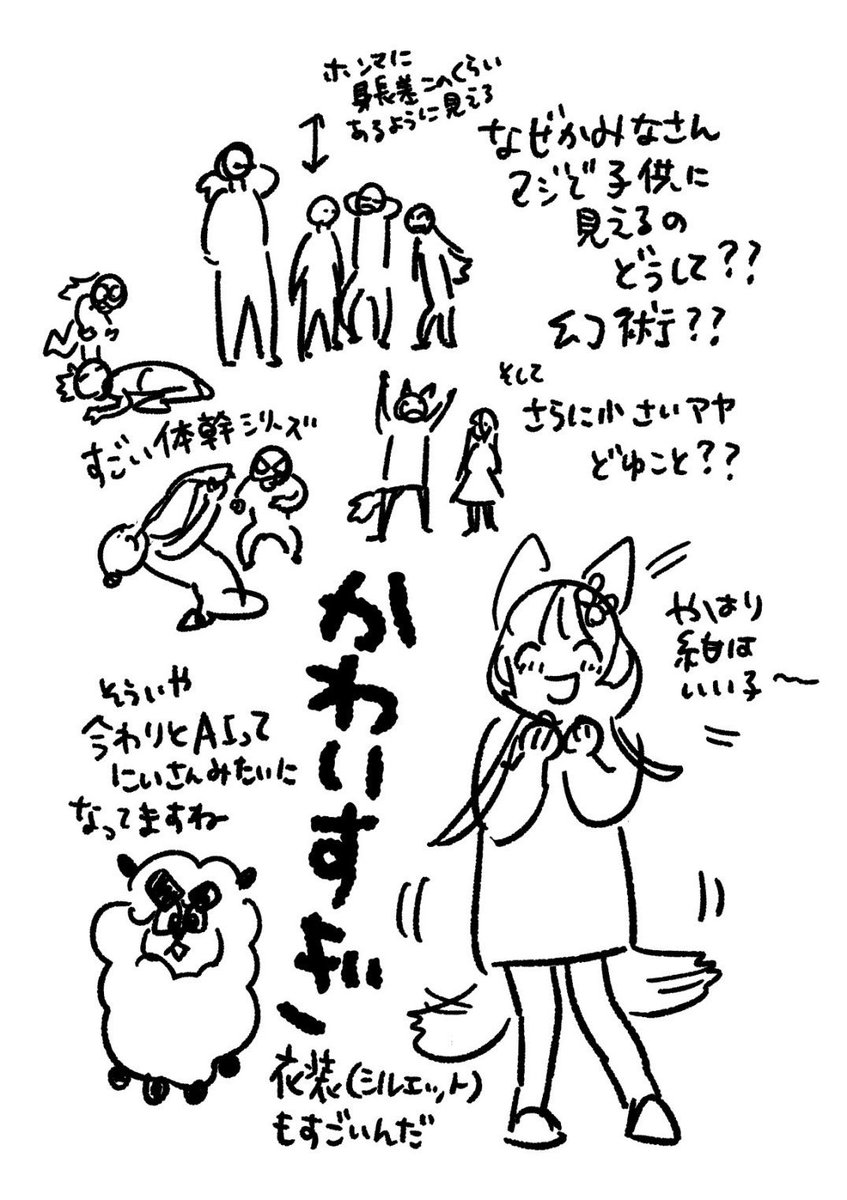 ホンマに
身長差このくらい
あるように見える
なぜかみなさん
マジで子供に
見えるの
どうして??
幻術??
すごい体幹シリーズ
そして
さらに小さいアヤ
どゆこと??
かわいすぎー
やはり
紺は
いい子〜
そういや
今わりとAIって
にいさんみたいに
なってますねー
衣装(シルエット)
もすごいんだ